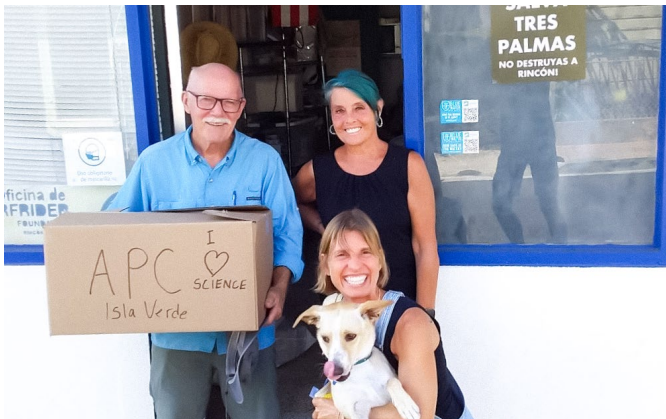 SALVA
TRES
PALMAS
NO DESTRUYAS A
RINCÓN!
oficina de
RFRIDER
FOUND
APC
I ♡
SCIENCE
Isla Verde